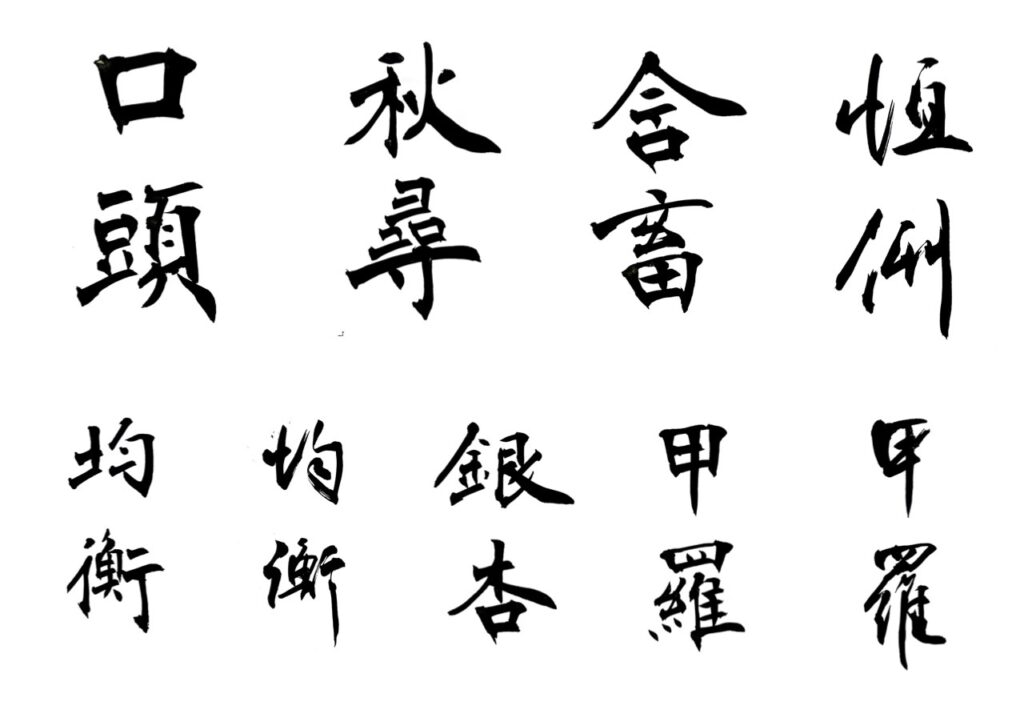 口頭
秋尋
含畜
恒例
均衡
均衡
銀杏
甲羅
甲羅